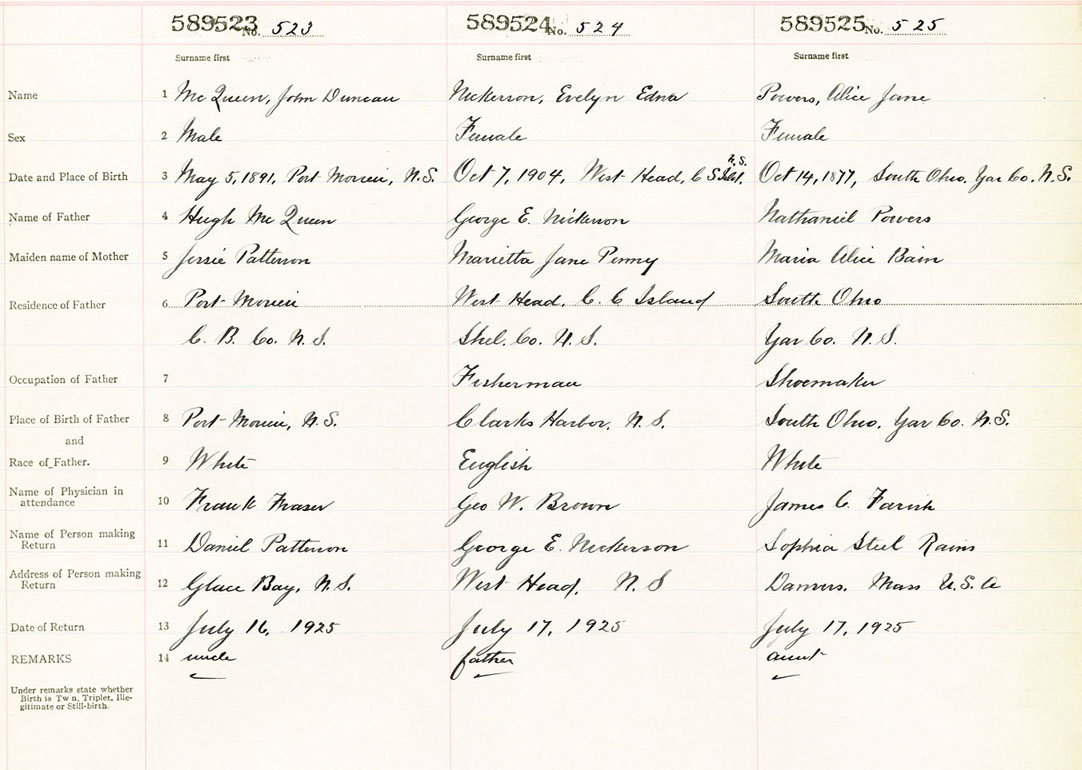 589523 No. 523 589524 No. 524 589525 No. 525
Surname first Surname first Surname first
Name 1 McQueen, John Duncan Nickerson, Evelyn Edna Powers, Alice Jane
Sex 2 Male Female Female
Date and Place of Birth 3 May 5, 1891, Port Morien, N.S. Oct 7, 1904, West Head, C S Isld. N.S. Oct 14, 1877, South Ohio, Yar Co. N.S.
Name of Father 4 Hugh McQueen George E. Nickerson Nathaniel Powers
Maiden name of Mother 5 Jessie Patterson Marietta Jane Penny Maria Alice Bain
Residence of Father 6 Port Morien West Head, C. C Island South Ohio
C. B. Co. N. S. Shel. Co. N. S. Yar Co. N. S.
Occupation of Father 7 Fisherman Shoemaker
Place of Birth of Father 8 Port Morien, N.S. Clarks Harbor, N. S. South Ohio, Yar Co. N.S.
and
Race of Father. 9 White English White
Name of Physician in
attendance 10 Frank Fraser Geo W. Brown James C. Farish
Name of Person making
Return 11 Daniel Patterson George E. Nickerson Sophia Steel Rains
Address of Person making
Return 12 Glace Bay, N.S. West Head, N. S Danvers, Mass U.S.A
Date of Return 13 July 16, 1925 July 17, 1925 July 17, 1925
REMARKS 14 uncle father aunt
Under remarks state whether
Birth is Twin, Triplet, Ille-
gitimate or Still-birth.